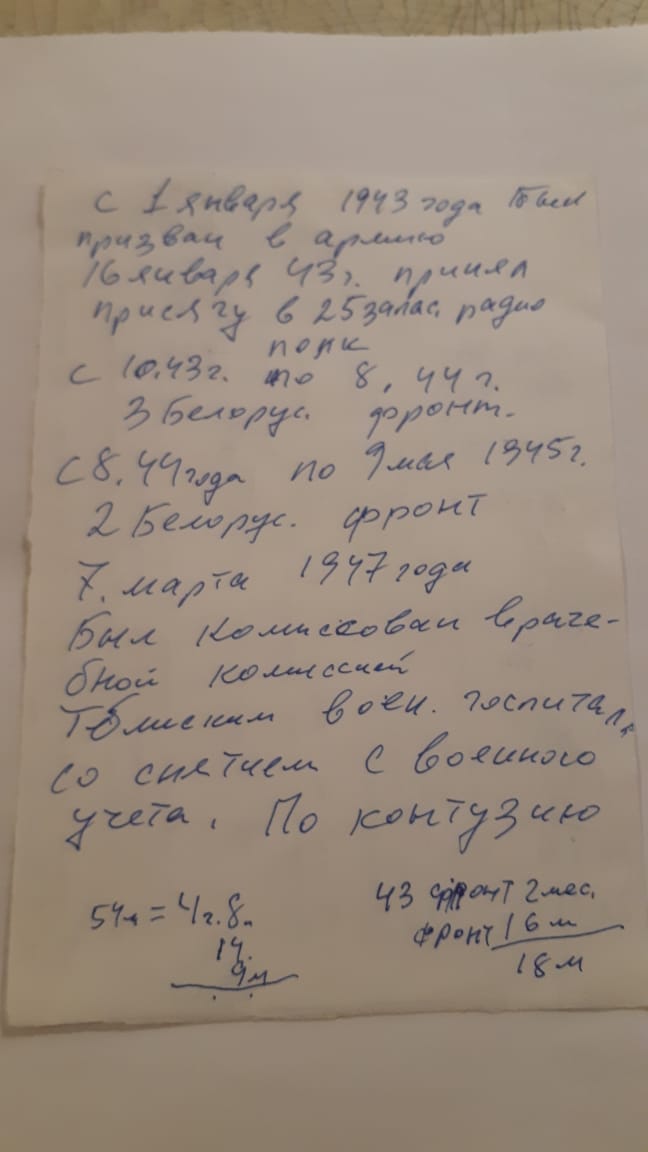 С 1 января 1943 года был
призван в армию
16 января 43 г. принял
присягу в 25 запас. радио
полк
С 10.43 г. по 8.44 г.
3 Белорус. фронт.
С 8.44 года по 9 мая 1945 г.
2 Белорус. фронт
7. марта 1947 года
Был комиссован враче-
бной комиссией
Тбилиским воен. госпиталя
со снятием с военного
учета. По контузию
43 фронт 2 мес.
54м = 4г. 8м
фронт 16 м
14.
9м
18 м